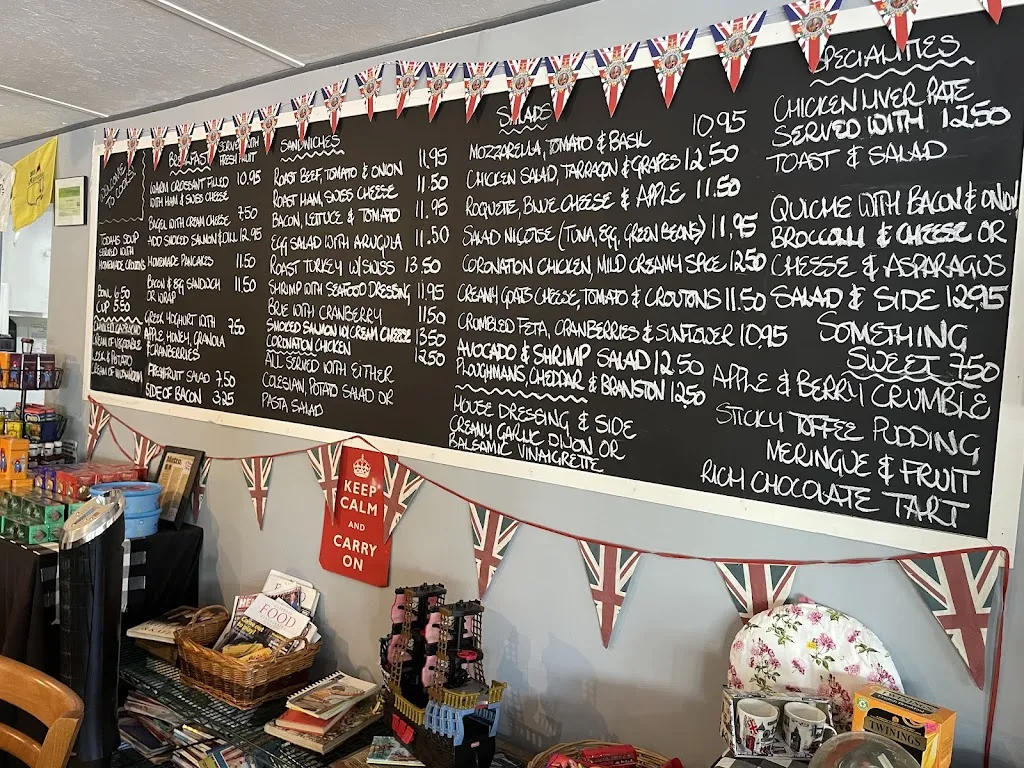 WELCOME TO
TODAYS SOUP
SERVED WITH
HOMEMADE CROUTONS
BOWL 6.50
CUP 5.50
CHILLED GAZPACHO
CREAM OF VEGETABLE
LEEK & POTATO
CREAM OF MUSHROOM
BREAKFAST SERVED WITH FRESH FRUIT
WARM CROISSANT FILLED 10.95
WITH HAM & SWISS CHEESE
BAGEL WITH CREAM CHEESE 7.50
ADD SMOKED SALMON & DILL 12.95
HOMEMADE PANCAKES 11.50
BACON & EGG SANDWICH 11.50
OR WRAP
GREEK YOGHURT WITH 7.50
APPLE, HONEY, GRANOLA
& CRANBERRIES
FRESH FRUIT SALAD 7.50
SIDE OF BACON 3.25
SANDWICHES
ROAST BEEF, TOMATO & ONION 11.95
ROAST HAM, SWISS CHEESE 11.50
BACON, LETTUCE & TOMATO 11.95
EGG SALAD WITH ARUGULA 11.50
ROAST TURKEY W/ SWISS 13.50
SHRIMP WITH SEAFOOD DRESSING 11.95
BRIE WITH CRANBERRY 11.50
SMOKED SALMON W/ CREAM CHEESE 13.50
CORONATION CHICKEN 12.50
ALL SERVED WITH EITHER
COLESLAW, POTATO SALAD OR
PASTA SALAD
SALADS
MOZZARELLA, TOMATO & BASIL 10.95
CHICKEN SALAD, TARRAGON & GRAPES 12.50
ROQUETTE, BLUE CHEESE & APPLE 11.50
SALAD NICOISE (TUNA, EGG, GREEN BEANS) 11.95
CORONATION CHICKEN, MILD CREAMY SPICE 12.50
CREAMY GOATS CHEESE, TOMATO & CROUTONS 11.50
CRUMBLED FETA, CRANBERRIES & SUNFLOWER 10.95
AVOCADO & SHRIMP SALAD 12.50
PLOUGHMANS, CHEDDAR & BRANSTON 12.50
HOUSE DRESSING & SIDE
CREAMY GARLIC DIJON OR
BALSAMIC VINAIGRETTE
SPECIALITIES
CHICKEN LIVER PATE
SERVED WITH 12.50
TOAST & SALAD
QUICHE WITH BACON & ONION
BROCCOLI & CHEESE OR
CHEESE & ASPARAGUS
SALAD & SIDE 12.95
SOMETHING
SWEET 7.50
APPLE & BERRY CRUMBLE
STICKY TOFFEE PUDDING
MERINGUE & FRUIT
RICH CHOCOLATE TART
KEEP
CALM
AND
CARRY
ON
FOOD
TWININGS